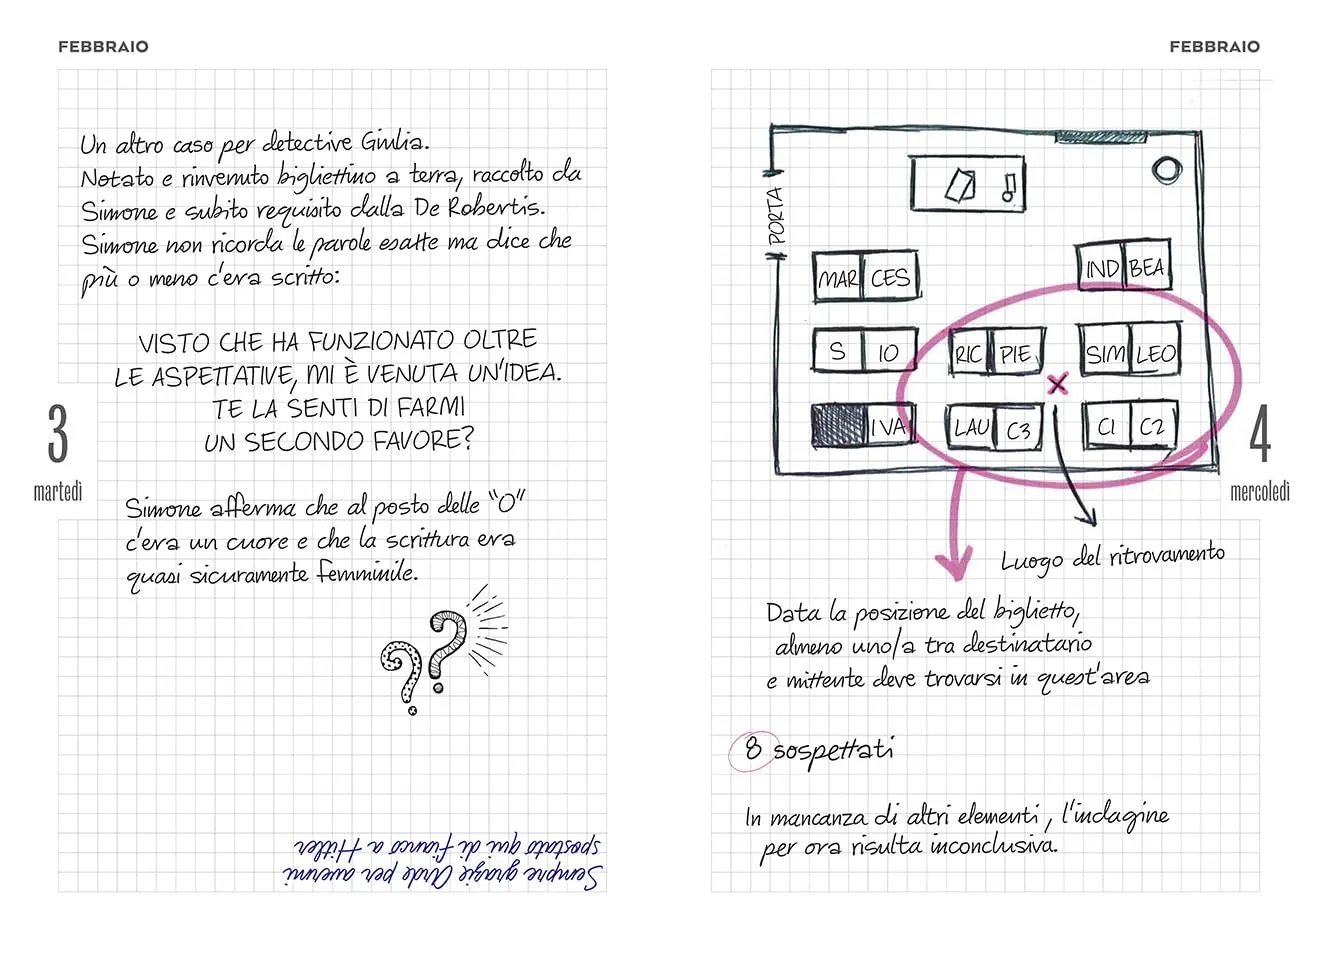 FEBBRAIO
Un altro caso per detective Giulia.
Notato e rinvenuto bigliettino a terra, raccolto da
Simone e subito requisito dalla De Robertis.
Simone non ricorda le parole esatte ma dice che
più o meno c'era scritto:
VISTO CHE HA FUNZIONATO OLTRE
LE ASPETTATIVE, MI È VENUTA UN'IDEA.
TE LA SENTI DI FARMI
UN SECONDO FAVORE?
3
martedì
Simone afferma che al posto delle "O"
c'era un cuore e che la scrittura era
quasi sicuramente femminile.
??
Sempre grazie Arde per avermi
spostato qui di fianco a Hitler
FEBBRAIO
PORTA
MAR CES
IND BEA
S IO
RIC PIE
SIM LEO
IVA
LAU C3
C1 C2
4
mercoledì
Luogo del ritrovamento
Data la posizione del biglietto,
almeno uno/a tra destinatario
e mittente deve trovarsi in quest'area
8 sospettati
In mancanza di altri elementi, l'indagine
per ora risulta inconclusiva.